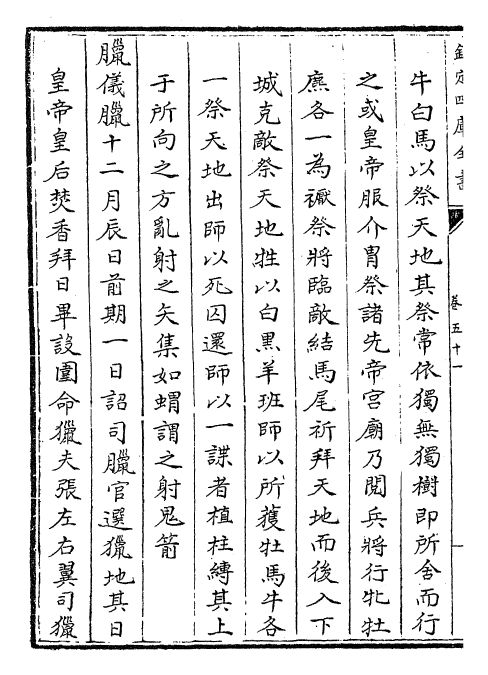 欽定四庫全書
卷五十一
牛白馬以祭天地其祭常依獨無獨樹即所舍而行
之或皇帝服介胄祭諸先帝宮廟乃閱兵將行牝牡
麃各一為禷祭將臨敵結馬尾祈拜天地而後入下
城克敵祭天地牲以白黑羊班師以所獲牡馬牛各
一祭天地出師以死囚還師以一諜者植柱縛其上
于所向之方亂射之矢集如蝟謂之射鬼箭
臘儀臘十二月辰日前期一日詔司臘官選獵地其日
皇帝皇后焚香拜日畢設圍命獵夫張左右翼司獵